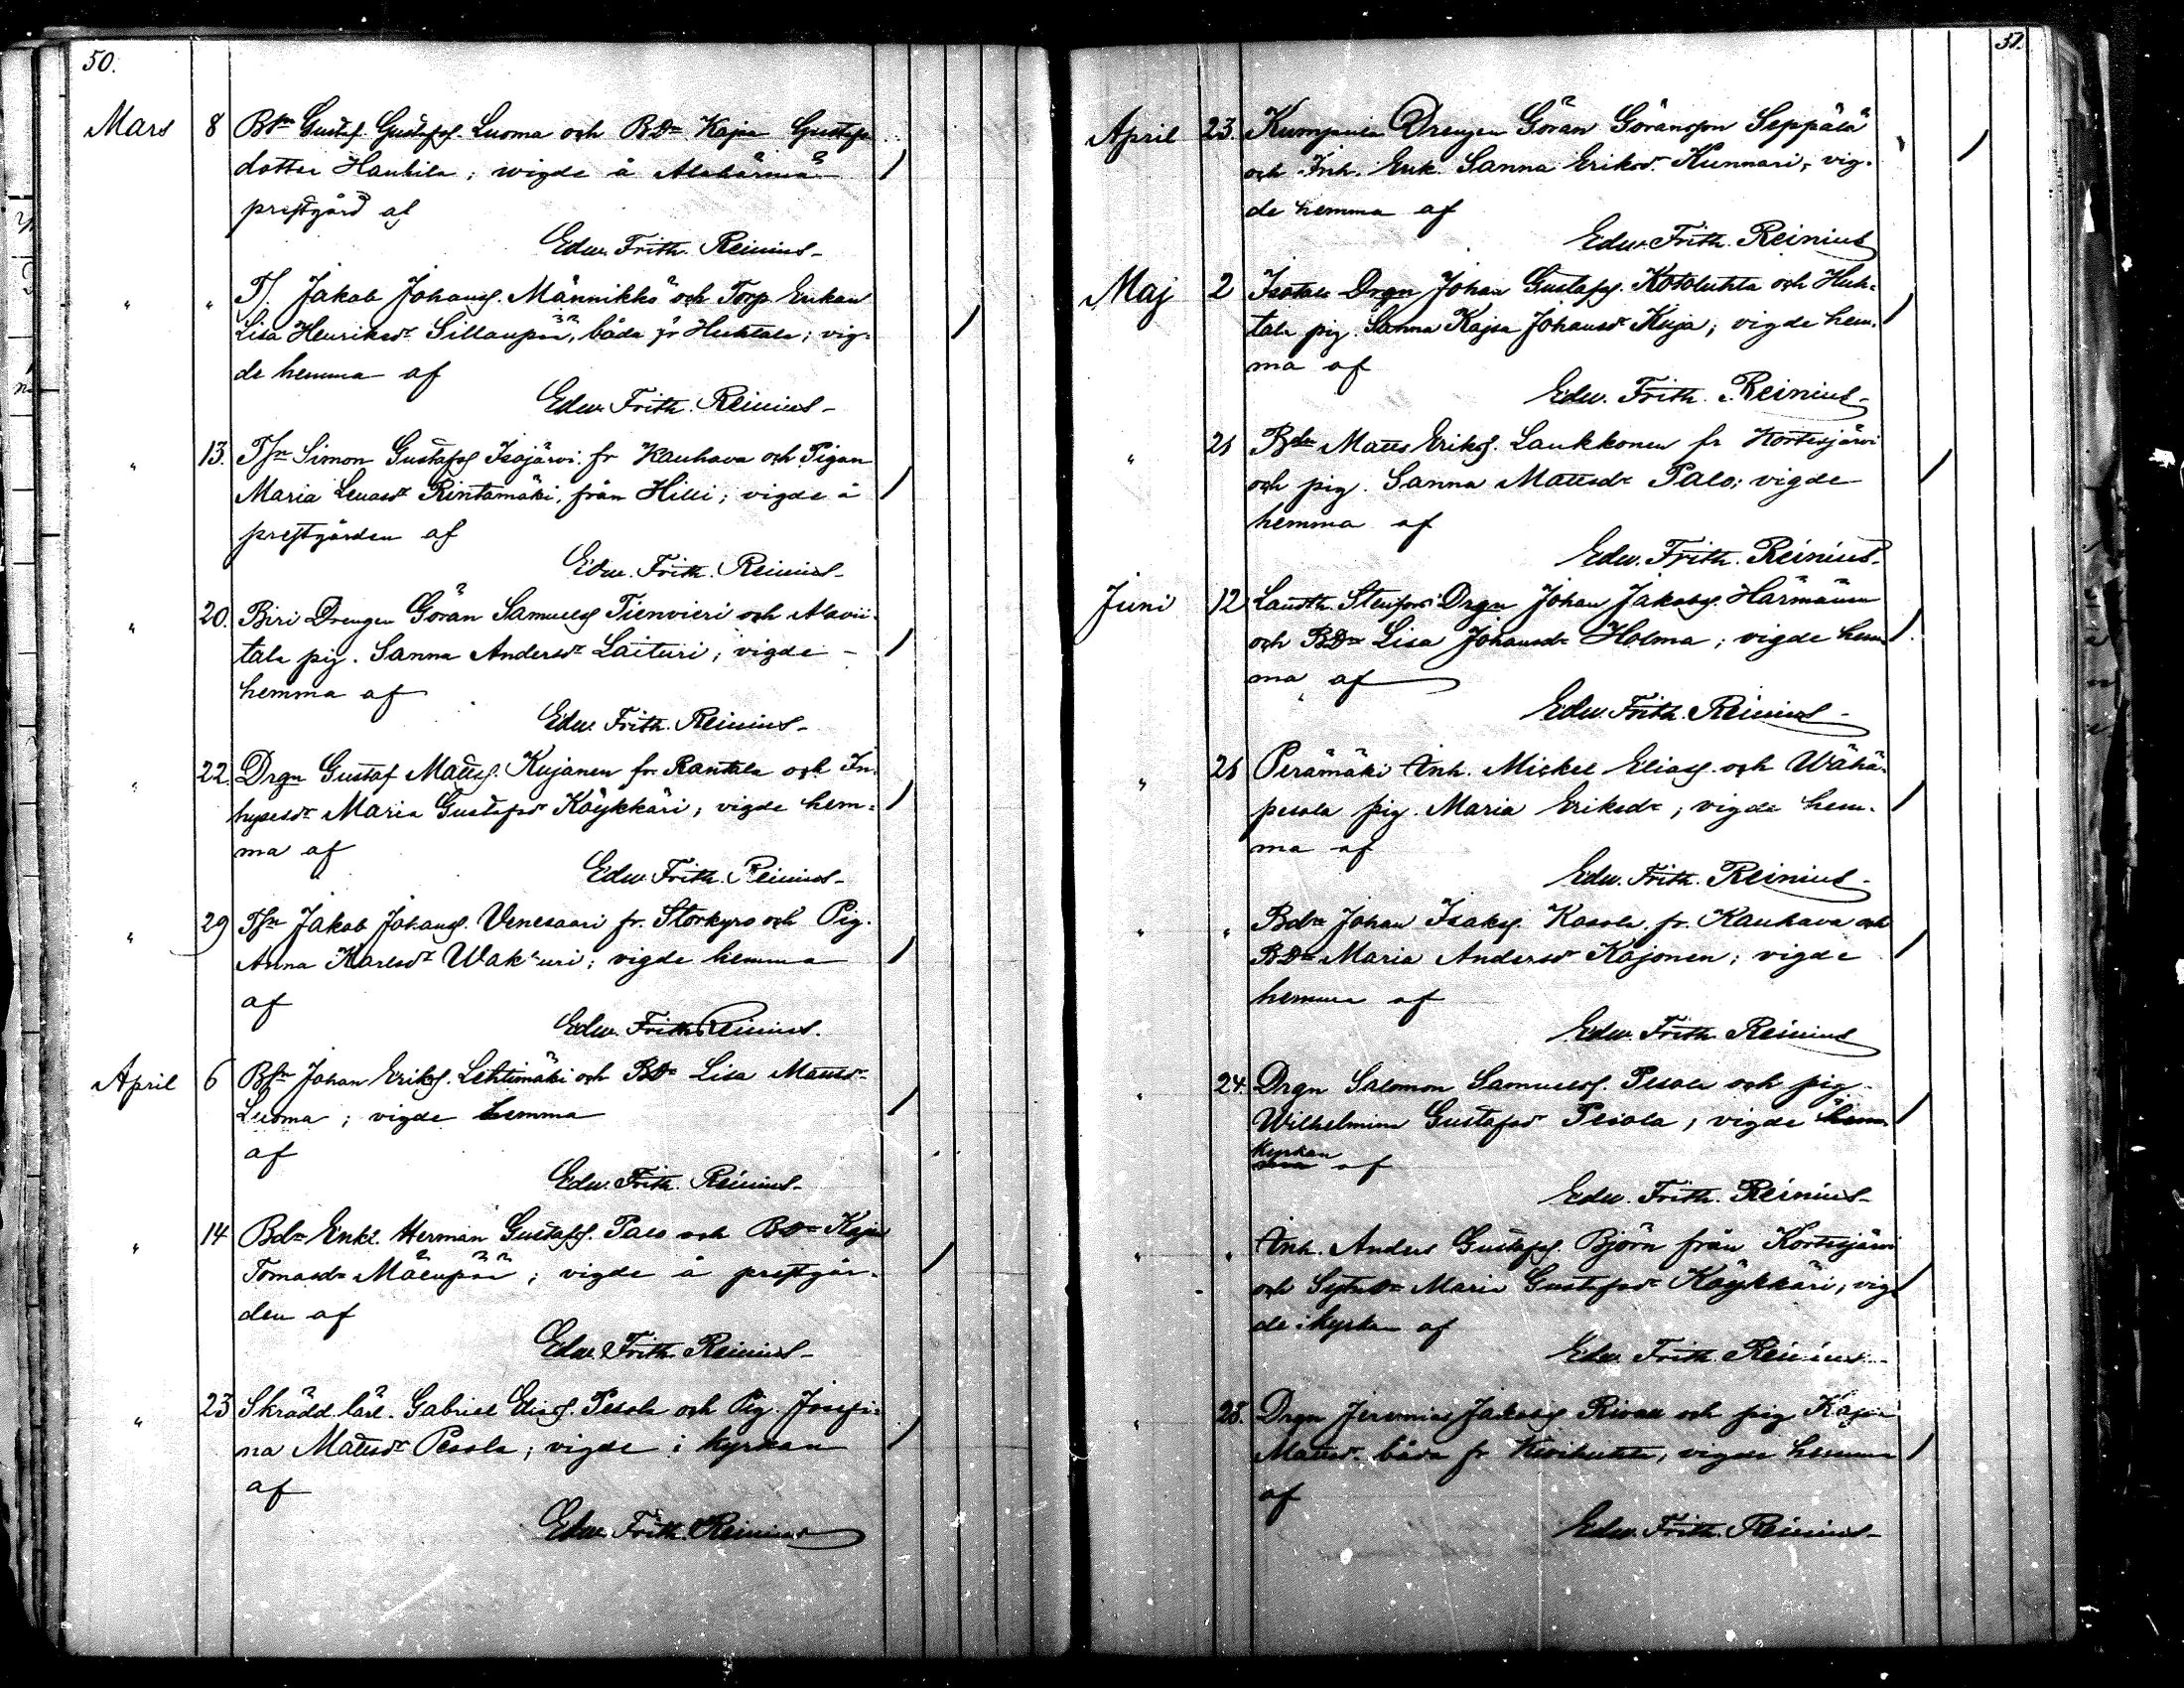 50.
Mars 8 Bsn Gustaf Gustafss. Luoma och BDr Kajsa Gustafs
dotter Haukila; wigde å Alahärmä
prestgård af
Edw. Frith. Reinius
" " Ts. Jakob Johanss. Männikkö och Torp. Enkan
Lisa Henriksdr Sillanpää, båda fr Huhtala; vig-
de hemma af
Edw. Frith. Reinius
" 13. Tsn Simon Gustafss Isojärvi fr Kauhava och Pigan
Maria Leuasdr Rintamäki, från Hilli; vigde å
prestgården af
Edw. Frith. Reinius
" 20. Biri Drengen Göran Samuelss Tienvieri och Alavii-
tala pig. Sanna Andersdr Laituri; vigde
hemma af
Edw. Frith. Reinius
" 22. Drgn Gustaf Matss. Kujanen fr. Rantala och In-
hysesdr Maria Gustafsdr Köykkäri; vigde hem-
ma af
Edw. Frith. Reinius
" 29 Tsn Jakob Johanss. Venesaari fr. Storkyro och Pig.
Anna Karlsdr Wakkuri; vigde hemma
af
Edw. Frith. Reinius.
April 6 Bsn Johan Erikss. Lehtimäki och BDr Lisa Mattsdr
Luoma; vigde hemma
af
Edw. Frith. Reinius
" 14 Bdn Enkl. Herman Gustafss. Palo och BDr Kajsa
Tomasdr Mäenpää; vigde å prestgår-
den af
Edw. Frith. Reinius
" 23 Skrädd. lärl. Gabriel Eliass. Pesola och Pig. Josefi-
na Mattsdr Pesola; vigde i kyrkan
af
Edw. Frith. Reinius
51.
April 23. Kumpula Drengen Göran Göransson Seppälä
och Inh. Enk. Sanna Eriksdr. Kunnari; vig-
de hemma af
Edw. Frith. Reinius
Maj 2 Isotalo Drgn Johan Gustafss. Kotoluhta och Huh-
tala pig. Sanna Kajsa Johansdr Kuja; vigde hem-
ma af
Edw. Frith. Reinius
" 21 Bdn Matts Erikss. Laukkonen fr Kortesjärvi
och pig. Sanna Mattsdr Palo; vigde
hemma af
Edw. Frith. Reinius
Juni 12 Landth. Drgn Johan Jakobss. Härmänen
och BDr Lisa Johansdr Holma; vigde hem
ma af
Edw. Frith. Reinius
" 21 Perämäki Inh. Mickel Eliass. och Wähä-
pesola pig. Maria Eriksdr; vigde hem-
ma af
Edw. Frith. Reinius
" " Bdn Johan Isakss. Kosola fr. Kauhava och
BDr Maria Andersdr Kajonen; vigde
hemma af
Edw. Frith Reinius
" 24. Drgn Salomon Samuelss. Pesola och pig
Wilhelmina Gustafsdr Pesola; vigde hem
kyrkan
af
Edw. Frith. Reinius
" " Inh. Anders Gustafss. Björn från Kortesjärvi
och Maria Gustafsdr Köykkäri; vig-
de i kyrkan af
Edw. Frith. Reinius
" 28. Drgn Jeremias Jakobss och pig Kajsa
Mattsdr. båda fr ; vigde hemma
af
Edw. Frith. Reinius